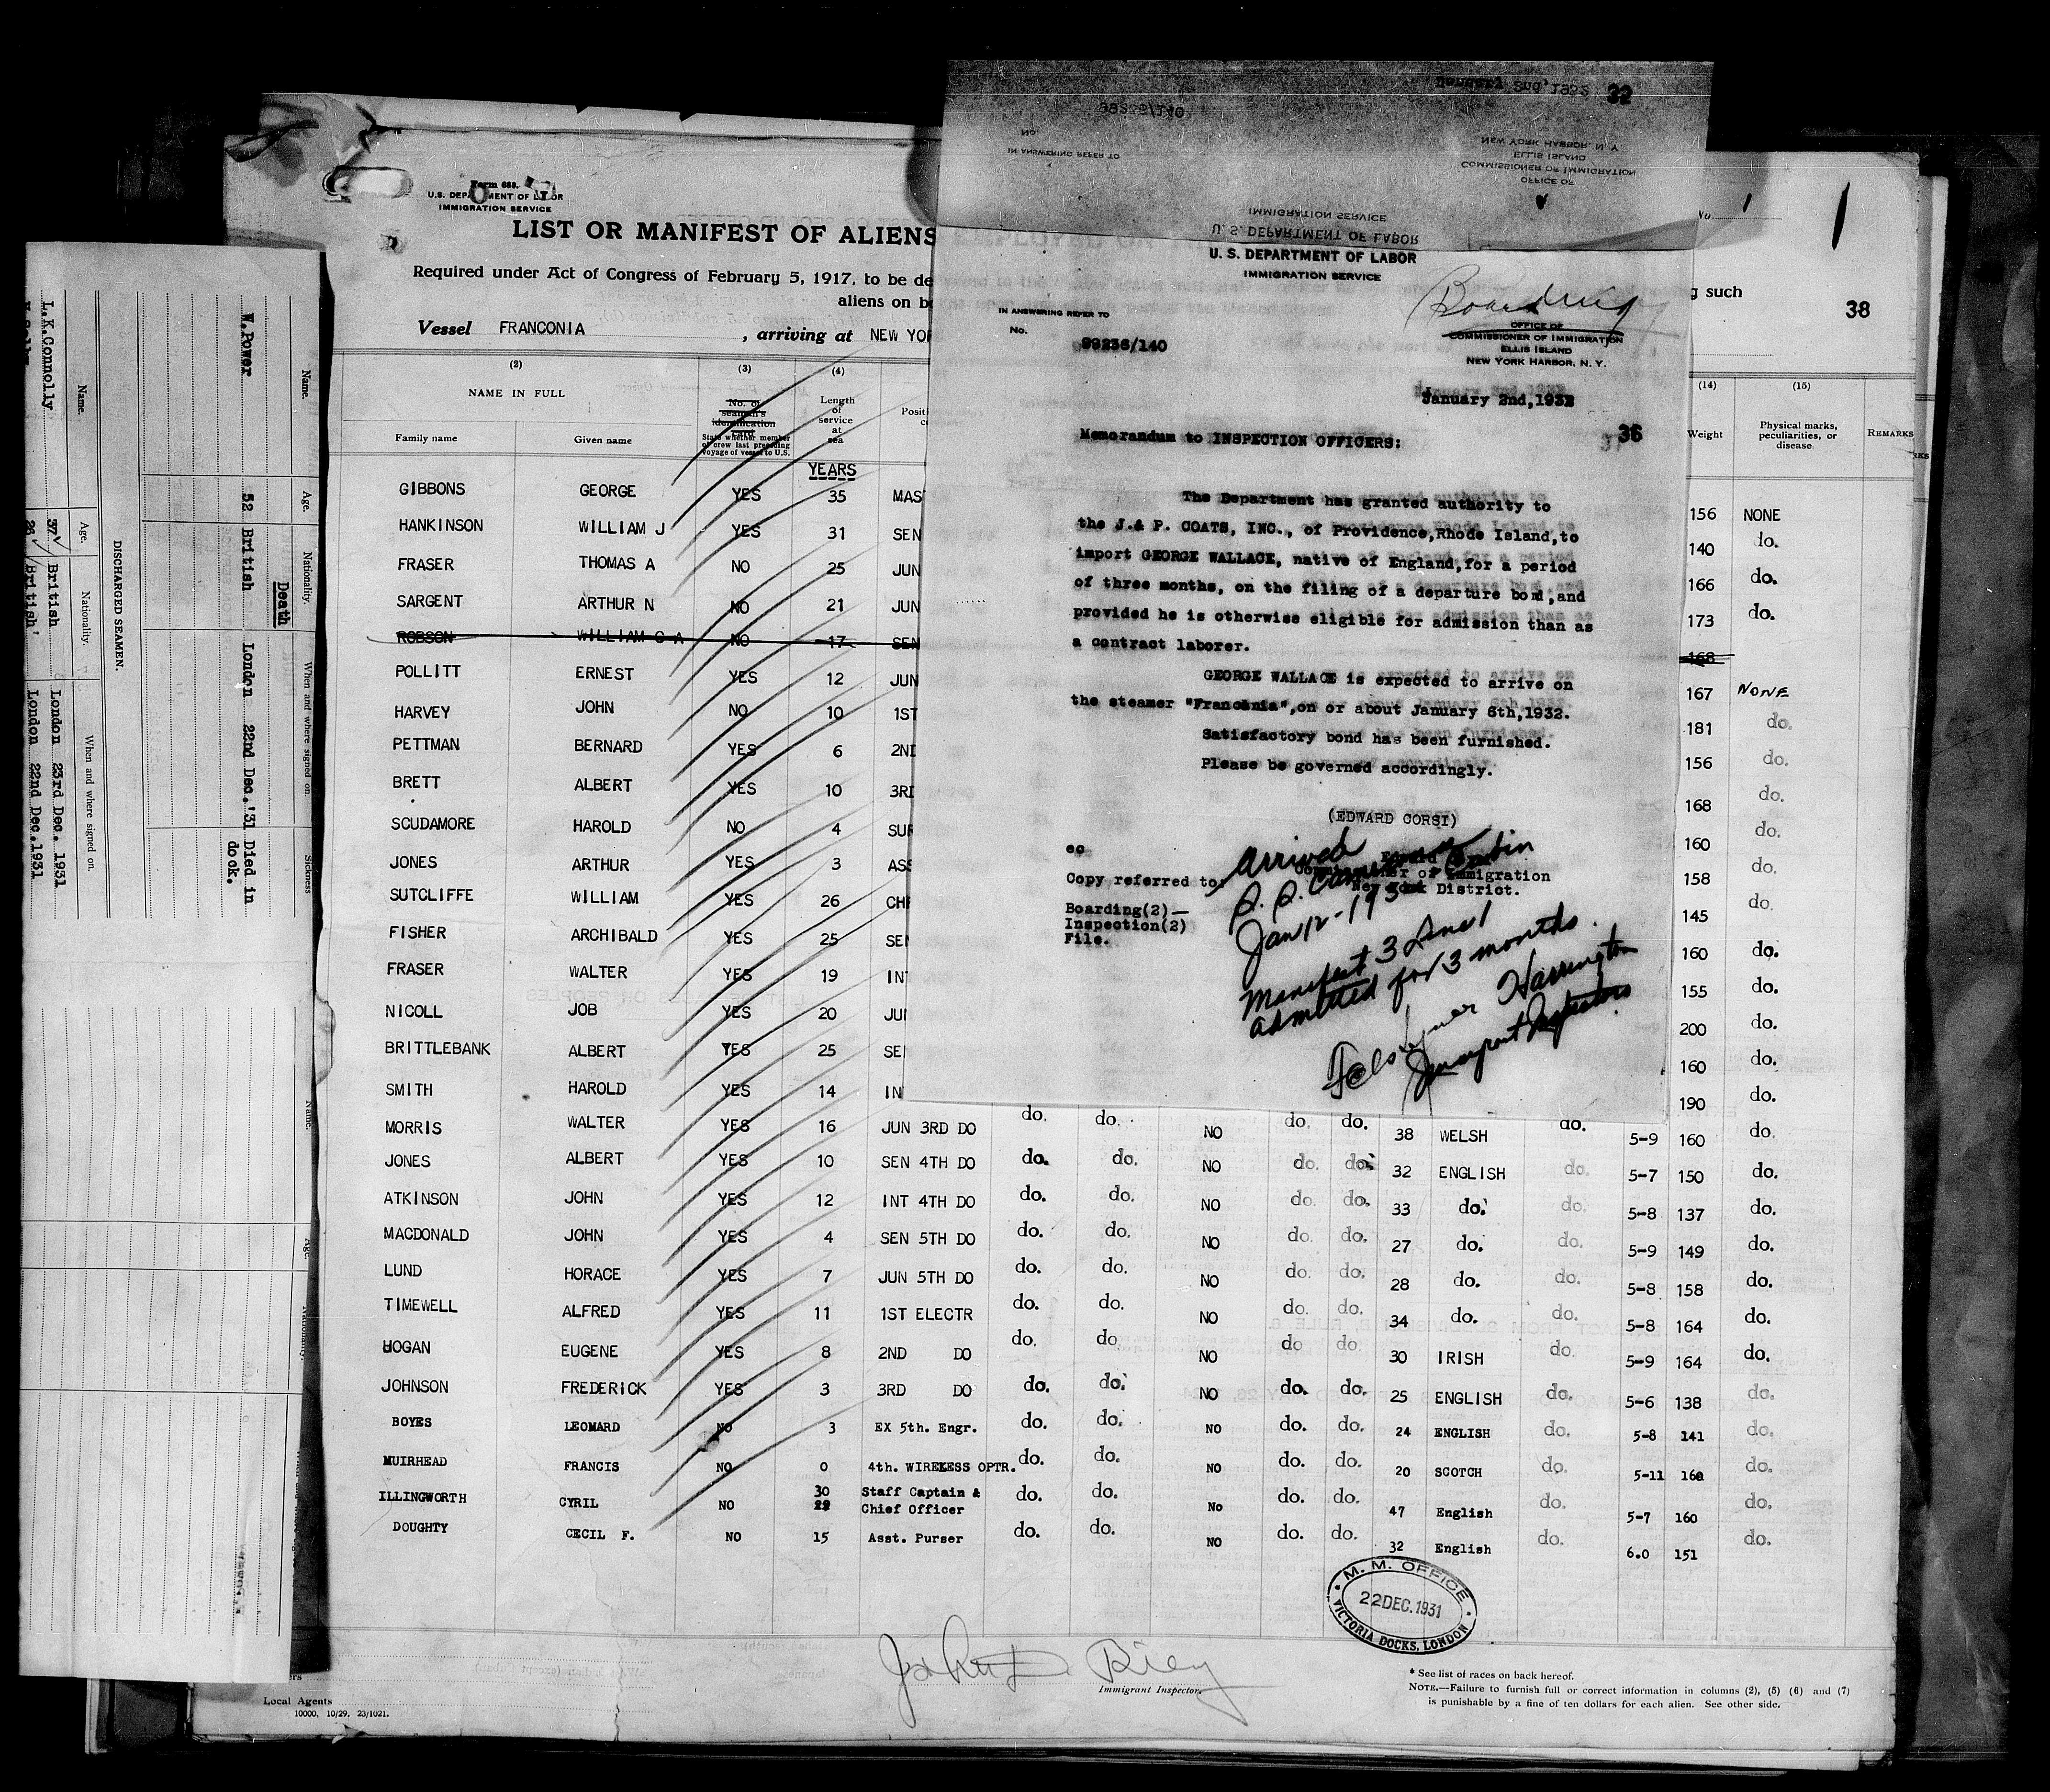 Form 688.
U.S. DEPARTMENT OF LABOR
IMMIGRATION SERVICE
LIST OR MANIFEST OF ALIENS
Required under Act of Congress of February 5, 1917, to be de
aliens on b
g such
No. 1
1
38
Vessel FRANCONIA , arriving at NEW YOR
(2)
NAME IN FULL
Family name
Given name
(3)
No. of seaman's identification card
State whether member of crew last preceding voyage of vessel to U.S.
(4)
Length of service at sea
YEARS
(14)
Weight
(15)
Physical marks, peculiarities, or disease
REMARKS
GIBBONS GEORGE YES 35 MAS 156 NONE
HANKINSON WILLIAM J YES 31 SEN 140 do.
FRASER THOMAS A NO 25 JUN 166 do.
SARGENT ARTHUR N NO 21 JUN 173 do.
ROBSON WILLIAM C A NO 17 SEN 168
POLLITT ERNEST YES 12 JUN 167 NONE
HARVEY JOHN NO 10 1ST 181 do.
PETTMAN BERNARD YES 6 2ND 156 do.
BRETT ALBERT YES 10 3RD 168 do.
SCUDAMORE HAROLD NO 4 SUR 160 do.
JONES ARTHUR YES 3 ASS 158 do.
SUTCLIFFE WILLIAM YES 26 CHF 145 do.
FISHER ARCHIBALD YES 25 SEN 160 do.
FRASER WALTER YES 19 INT 155 do.
NICOLL JOB YES 20 JUN 200 do.
BRITTLEBANK ALBERT YES 25 SE 160 do.
SMITH HAROLD YES 14 IN 190 do.
MORRIS WALTER YES 16 JUN 3RD DO do. do. NO do. do. 38 WELSH do. 5-9 160 do.
JONES ALBERT YES 10 SEN 4TH DO do. do. NO do. do. 32 ENGLISH do. 5-7 150 do.
ATKINSON JOHN YES 12 INT 4TH DO do. do. NO do. do. 33 do. do. 5-8 137 do.
MACDONALD JOHN YES 4 SEN 5TH DO do. do. NO do. do. 27 do. do. 5-9 149 do.
LUND HORACE YES 7 JUN 5TH DO do. do. NO do. do. 28 do. do. 5-8 158 do.
TIMEWELL ALFRED YES 11 1ST ELECTR do. do. NO do. do. 34 do. do. 5-8 164 do.
HOGAN EUGENE YES 8 2ND DO do. do NO do do. 30 IRISH do. 5-9 164 do.
JOHNSON FREDERICK YES 3 3RD DO do. do. NO do. do. 25 ENGLISH do. 5-6 138 do.
BOYES LEOMARD NO 3 EX 5th. Engr. do. do. NO do. do. 24 ENGLISH do. 5-8 141 do.
MUIRHEAD FRANCIS NO 0 4th. WIRELESS OPTR. do. do. NO do. do. 20 SCOTCH do. 5-11 160 do.
ILLINGWORTH CYRIL NO 30 Staff Captain & Chief Officer do. do. No do. do. 47 English do. 5-7 160 do.
DOUGHTY CECIL F. NO 15 Asst. Purser do. do. NO do. do. 32 English do. 6.0 151 do.
M. M. OFFICE
22 DEC. 1931
VICTORIA DOCKS, LONDON
Immigrant Inspector.
* See list of races on back hereof.
NOTE.—Failure to furnish full or correct information in columns (2), (5) (6) and (7)
is punishable by a fine of ten dollars for each alien. See other side.
Local Agents
10000, 10/29, 23/1021.
January 2nd, 1932 32
99236/140
No.
IN ANSWERING REFER TO
NEW YORK HARBOR, N. Y
ELLIS ISLAND
COMMISSIONER OF IMMIGRATION
OFFICE OF
IMMIGRATION SERVICE
U. S. DEPARTMENT OF LABOR
U. S. DEPARTMENT OF LABOR
IMMIGRATION SERVICE
Boarding
IN ANSWERING REFER TO
No.
99236/140
OFFICE OF
COMMISSIONER OF IMMIGRATION
ELLIS ISLAND
NEW YORK HARBOR, N. Y.
January 2nd,1932
36
Memorandum to INSPECTION OFFICERS:
The Department has granted authority to
the J.& P. COATS, INC., of Providence,Rhode Island,to
import GEORGE WALLACE, native of England,for a period
of three months, on the filing of a departure bond,and
provided he is otherwise eligible for admission than as
a contract laborer.
GEORGE WALLACE is expected to arrive on
the steamer "Franconia",on or about January 6th,1932.
Satisfactory bond has been furnished.
Please be governed accordingly.
(EDWARD CORSI)
Commissioner of Immigration
New York District.
Copy referred to:
Boarding(2)—
Inspection(2)
File.
Arrived
Jan 12-193
Manifest 3 Line 1
admitted for 3 months
Harrington
DISCHARGED SEAMEN.
Name. Age. Nationality. When and where signed on.
L.K.Connolly 37 British London 23rd Dec. 1931
26 British London 22nd Dec.1931
Name. Age. Nationality. When and where signed on. Sickness
Death
W.Power 52 British London 22nd Dec.'31 Died in
dock.